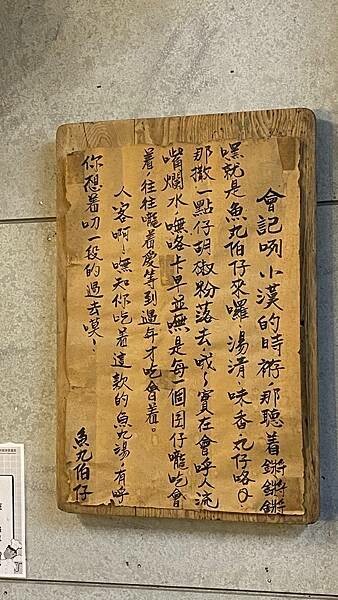 會記咧小漢的時術，那聽着鏘鏘鏘鏘鏘鏘
嘿就是魚丸伯仔來囉，湯清，味香，丸仔咯Q，
那撒一點仔胡椒粉落去，哦～實在會呼人流
嘴爛水，嘸咯卡早並嘸是每一個囝仔嚨吃會
着，往往嚨着愛等到過年才吃會着。
人客啊～嘸知你吃着這款的魚丸湯，有呼
你想着叨一段的過去莫～
魚丸伯仔